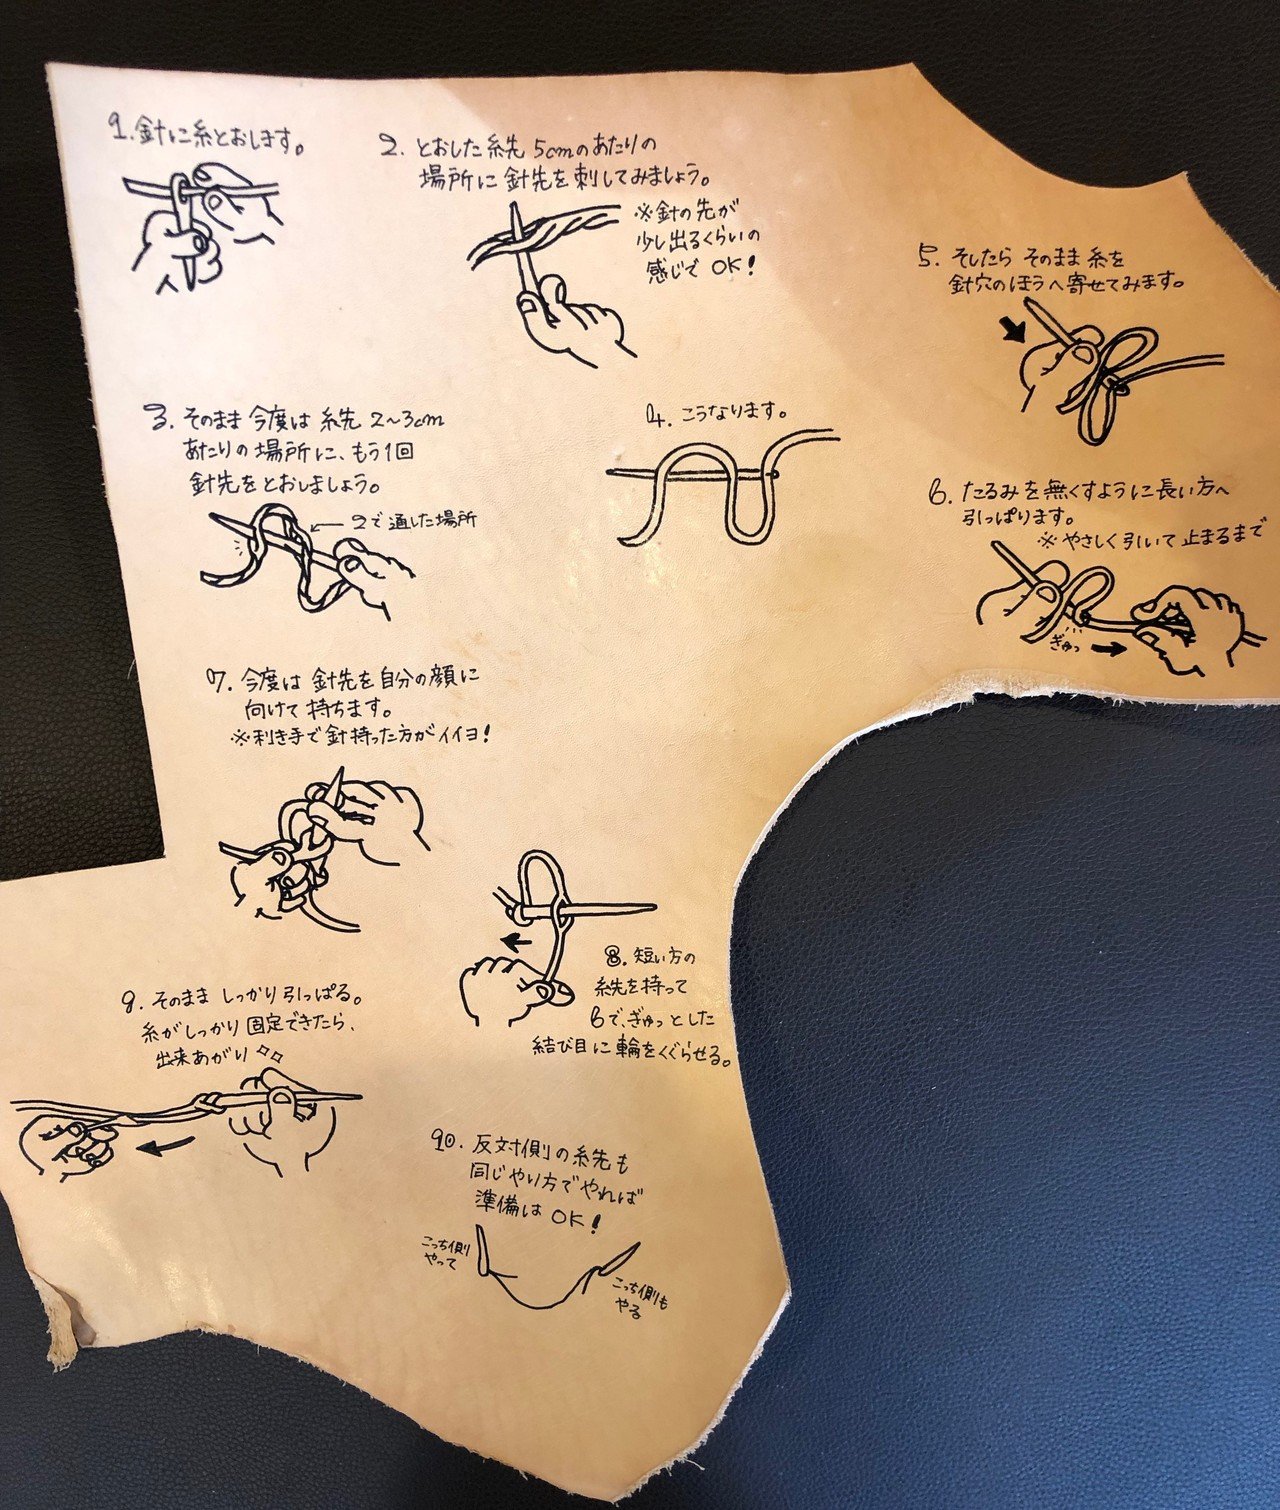 1. 針に糸とおします。
2. とおした糸先 5cmのあたりの
場所に針先を刺してみましょう。
※針の先が
少し出るくらいの
感じで OK!
3. そのまま 今度は 糸先 2〜3cm
あたりの場所に、もう1回
針先をとおしましょう。
←2で通した場所
4. こうなります。
5. そしたら そのまま 糸を
針穴のほうへ寄せてみます。
6. たるみを無くすように長い方へ
引っぱります。
※やさしく引いて止まるまで
ぎゅっ
7. 今度は 針先を自分の顔に
向けて持ちます。
※利き手で針持った方がイイヨ!
8. 短い方の
糸先を持って
6で、ぎゅっとした
結び目に輪をくぐらせる。
9. そのまま しっかり引っぱる。
糸がしっかり固定できたら、
出来あがり
10. 反対側の糸先も
同じやい方でやれば
準備は OK!
こっち側
やって
こっち側も
やる